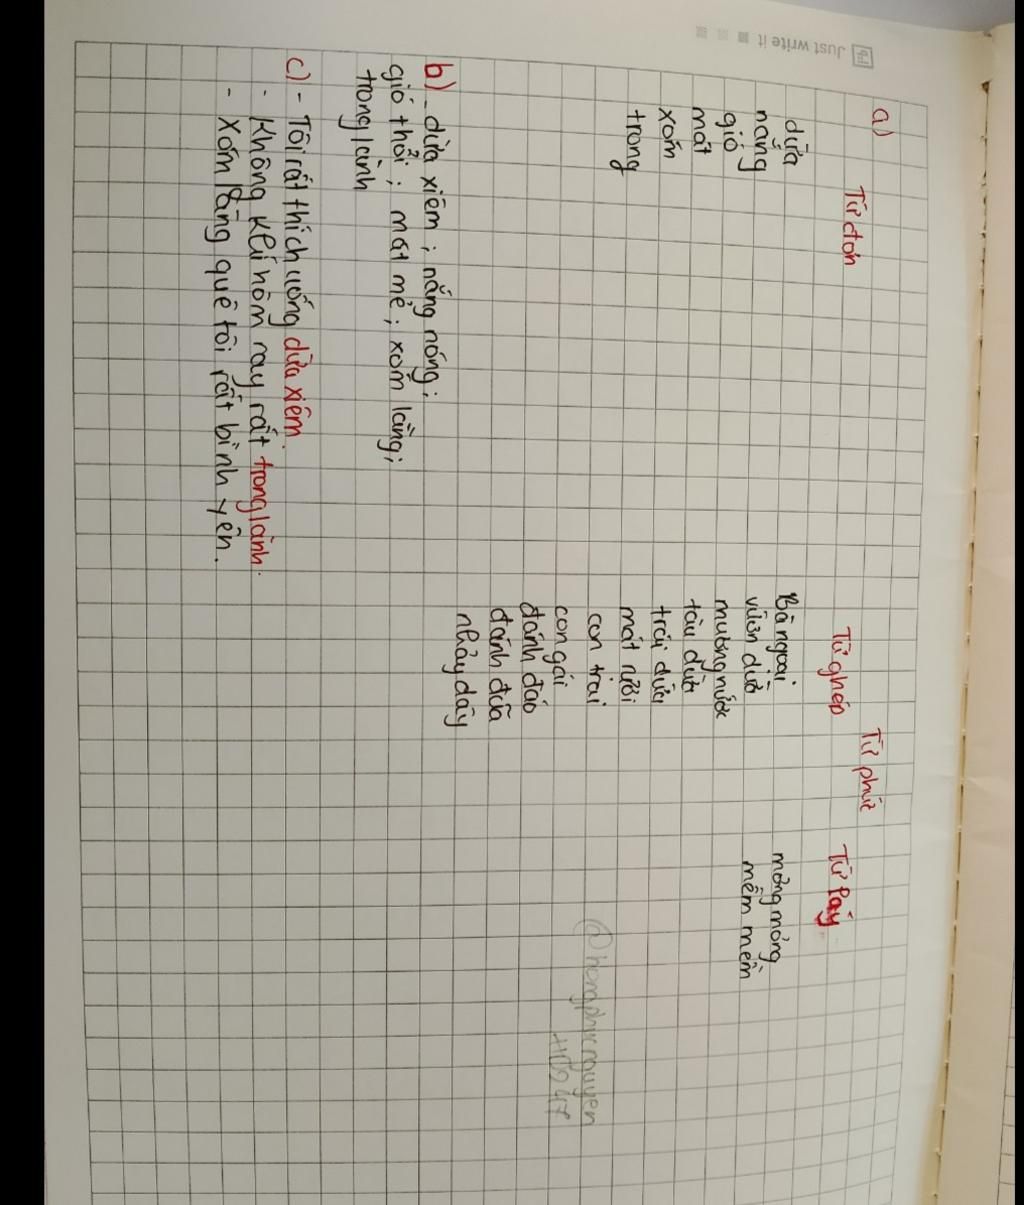 Just write it
a)
Từ đơn
Từ phức
Từ ghép
Từ láy
dừa
nắng
gió
mát
xóm
trong
Bà ngoại
vườn dừa
mương nước
tàu dừa
trái dừa
mát rượi
con trai
con gái
đánh đáo
đánh đũa
nhảy dây
mỏng mỏng
mềm mềm
b) - dừa xiêm ; nắng nóng ;
gió thổi ; mát mẻ ; xóm làng ;
trong lành
c) - Tôi rất thích uống dừa xiêm.
- Không khí hôm nay rất trong lành.
- Xóm làng quê tôi rất bình yên.